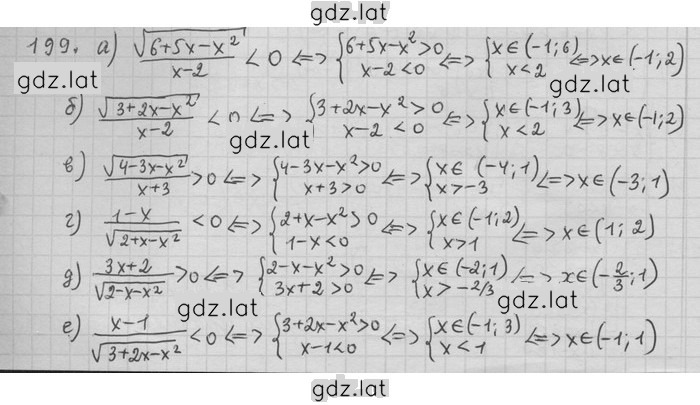 gdz.lat
199. а) √(6+5x−x²)/(x−2) < 0 <=> {6+5x−x²>0 x−2<0 <=> {x∈(−1;6) x<2 <=> x∈(−1;2)
gdz.lat gdz.lat
б) √(3+2x−x²)/(x−2) < 0 <=> {3+2x−x²>0 x−2<0 <=> {x∈(−1;3) x<2 <=> x∈(−1;2)
gdz.lat
в) √(4−3x−x²)/(x+3) >0 <=> {4−3x−x²>0 x+3>0 <=> {x∈(−4;1) x>−3 <=> x∈(−3;1)
г) (1−x)/√(2+x−x²) <0 <=> {2+x−x²>0 1−x<0 <=> {x∈(−1;2) x>1 <=> x∈(1;2)
gdz.lat
д) (3x+2)/√(2−x−x²) >0 <=> {2−x−x²>0 3x+2>0 <=> {x∈(−2;1) x>−2/3 <=> x∈(−2/3;1)
gdz.lat gdz.lat
е) (x−1)/√(3+2x−x²) <0 <=> {3+2x−x²>0 x−1<0 <=> {x∈(−1;3) x<1 <=> x∈(−1;1)
gdz.lat